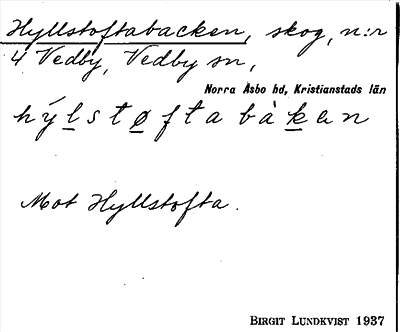 Hyllstoftabacken, skog, n:r
4 Vedby, Vedby sn,
Norra Åsbo hd, Kristianstads län
hýlstøftabàkan
Mot Hyllstofta.
BIRGIT LUNDKVIST 1937